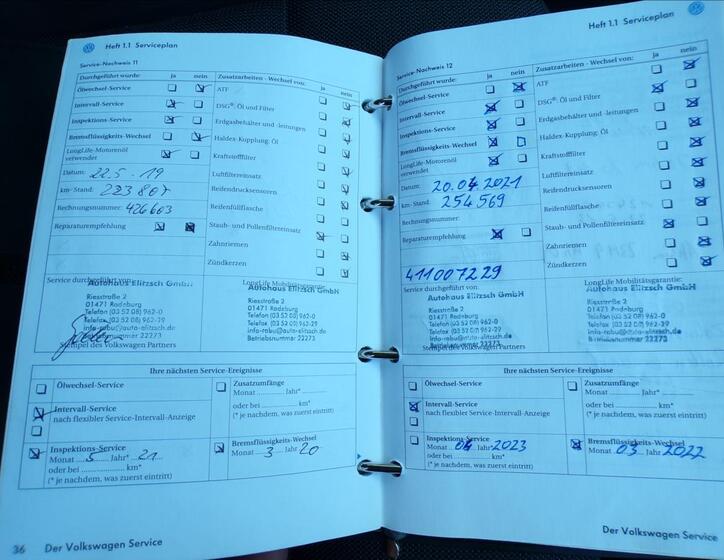 Heft 1.1 Serviceplan
Service-Nachweis 11
Durchgeführt wurde: ja nein
Ölwechsel-Service
Intervall-Service
Inspektions-Service
Bremsflüssigkeits-Wechsel
LongLife-Motorenöl
verwendet
Datum: 22.5.19
km-Stand: 223807
Rechnungsnummer: 426603
Reparaturempfehlung
Zusatzarbeiten - Wechsel von: ja nein
ATF
DSG®: Öl und Filter
Erdgasbehälter und -leitungen
Haldex-Kupplung: Öl
Kraftstofffilter
Luftfiltereinsatz
Reifendrucksensoren
Reifenfüllflasche
Staub- und Pollenfiltereinsatz
Zahnriemen
Zündkerzen
Service durchgeführt von:
Autohaus Elitzsch GmbH
Riesstraße 2
01471 Radeburg
Telefon (03 52 08) 962-0
info-rabu@auto-elitzsch.de
Stempel des Volkswagen Partners
LongLife Mobilitätsgarantie:
Autohaus Elitzsch GmbH
Riesstraße 2
01471 Radeburg
Telefon (03 52 08) 962-0
Fax (03 52 08) 962-29
info-rabu@auto-elitzsch.de
Betriebsnummer 22273
Ihre nächsten Service-Ereignisse
Ölwechsel-Service
Intervall-Service
nach flexibler Service-Intervall-Anzeige
Inspektions-Service
Monat 5 Jahr* 21
oder bei km*
(* je nachdem, was zuerst eintritt)
Zusatzumfänge
Monat Jahr*
oder bei km*
(* je nachdem, was zuerst eintritt)
Bremsflüssigkeits-Wechsel
Monat 3 Jahr 20
36 Der Volkswagen Service
Heft 1.1 Serviceplan
Service-Nachweis 12
Durchgeführt wurde: ja nein
Ölwechsel-Service
Intervall-Service
Inspektions-Service
Bremsflüssigkeits-Wechsel
LongLife-Motorenöl
verwendet
Datum: 20.04.2021
km-Stand: 254569
Rechnungsnummer:
Reparaturempfehlung
411007229
Zusatzarbeiten - Wechsel von: ja nein
ATF
DSG®: Öl und Filter
Erdgasbehälter und -leitungen
Haldex-Kupplung: Öl
Kraftstofffilter
Luftfiltereinsatz
Reifendrucksensoren
Reifenfüllflasche
Staub- und Pollenfiltereinsatz
Zahnriemen
Zündkerzen
Service durchgeführt von:
Autohaus Elitzsch GmbH
Riesstraße 2
01471 Radeburg
Telefon (03 52 08) 962-0
info-rabu@auto-elitzsch.de
Betriebsnummer 22273
Stempel des Volkswagen Partners
LongLife Mobilitätsgarantie:
Autohaus Elitzsch GmbH
Riesstraße 2
01471 Radeburg
Telefon (03 52 08) 962-0
info-rabu@auto-elitzsch.de
Betriebsnummer 22273
Ihre nächsten Service-Ereignisse
Ölwechsel-Service
Intervall-Service
nach flexibler Service-Intervall-Anzeige
Inspektions-Service
Monat 04 Jahr* 2023
oder bei km*
(* je nachdem, was zuerst eintritt)
Zusatzumfänge
Monat Jahr*
oder bei km*
(* je nachdem, was zuerst eintritt)
Bremsflüssigkeits-Wechsel
Monat 03 Jahr 2022
Der Volkswagen Service